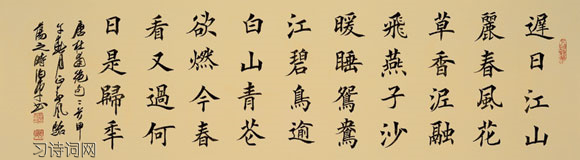 遲日江山
麗春風花
草香泥融
飛燕子沙
暖睡鴛鴦
江碧鳥逾
白山青花
欲燃今春
看又過何
日是歸年
唐杜甫絕句二首甲
午
习诗词网